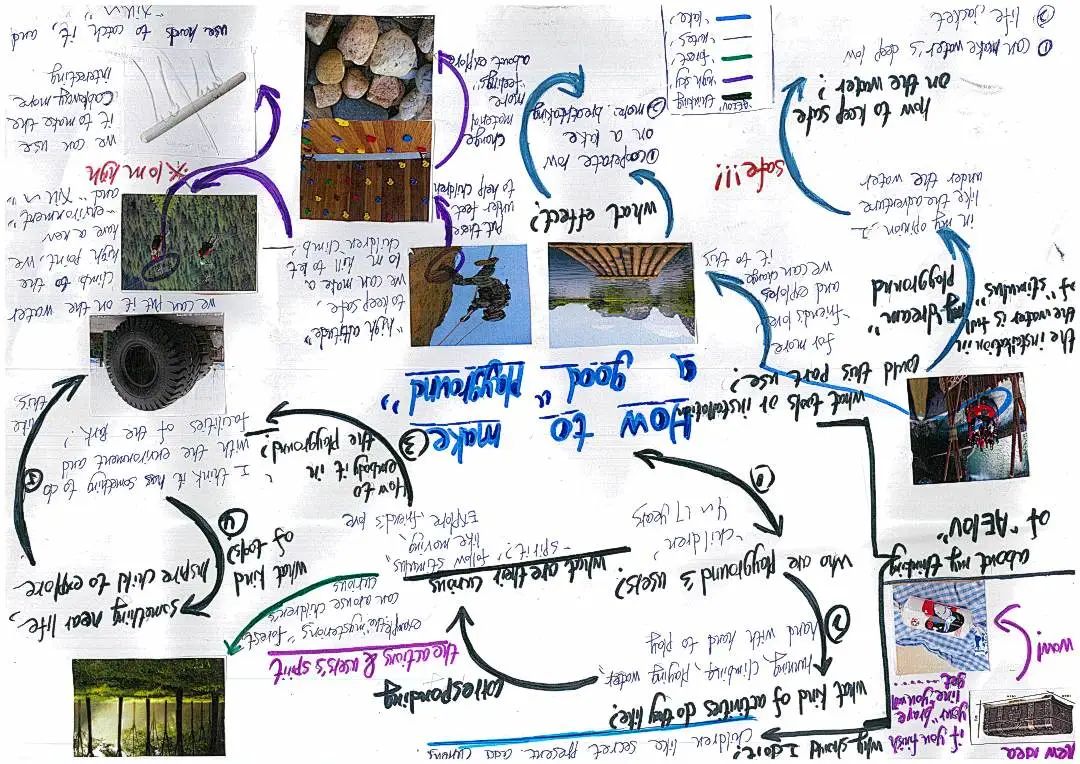 new idea
if you finish
your "brave
line" you will
get ......
why should I do it?
children like secret present and curious
what kind of activities do they like?
running, climbing, playing water
hand with hand to play
corresponding
the actions & users's spirit
example, the "mysterious" forest
can arouse children's
curious
about my thinking
①
②
who are playground's users?
"children"
4~17 years
what are their curious
"spirit?"
"follow stimulus"
like moving,
explore friend's love
something near life,
inspire child to explore
④
what kind
of tools?
⑤
③
How to
embody it in
the playground?
I think it has something to do
with the environment and
facilities of the park, like
this
How to make
a good "playground"
what tools or installation
could this part use?
the installation in
the water is full
of "stimulus"
"my dream"
playground
for more
"friends love"
and explores
we can change
it to this
in my opinion, I
like the adventure
under the water
how to keep safe
on the water?
① can make water's deep low
② life jacket
safe!!!
what effect?
① cooperate low
on a lake
② more breathtaking
"high altitude"
to keep safe,
we can make a
10m hill to let
children climb
put these
under feet
to help children
change
material
more
"feelings"
about explore
we can put it on the water
climb to the
high point, we
have a new
"environment"
and
※10m high
we can use
it to make the
more
interesting
use hands to catch it, and
thinking
high light
forest
notes
lake